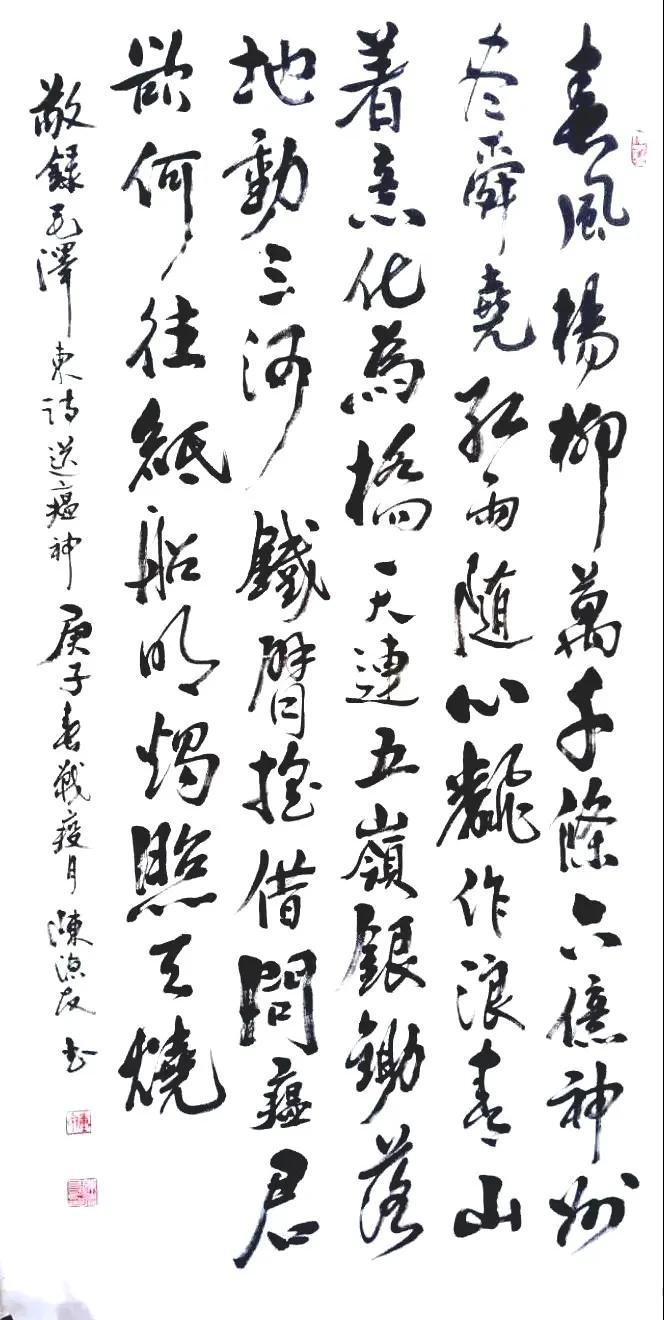 春風楊柳萬千條六億神州
尽舜堯紅雨随心飜作浪青山
着意化為橋天連五嶺銀鋤落
地動三河鐵臂摇借問瘟君
欲何往紙船明燭照天燒
敬錄毛澤東詩送瘟神庚子春戰疫月 书